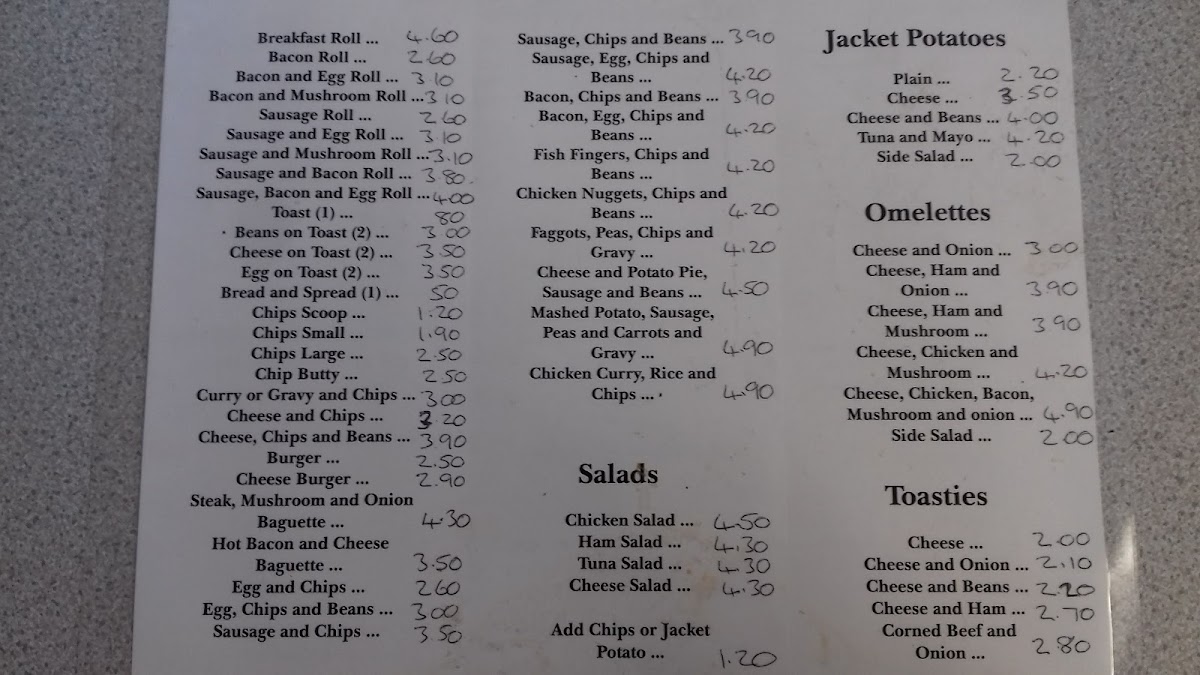 Breakfast Roll ... 4.60
Bacon Roll ... 2.60
Bacon and Egg Roll ... 3.10
Bacon and Mushroom Roll ... 3.10
Sausage Roll ... 2.60
Sausage and Egg Roll ... 3.10
Sausage and Mushroom Roll ... 3.10
Sausage and Bacon Roll ... 3.80
Sausage, Bacon and Egg Roll ... 4.00
Toast (1) ... 80
Beans on Toast (2) ... 3.00
Cheese on Toast (2) ... 3.50
Egg on Toast (2) ... 3.50
Bread and Spread (1) ... 50
Chips Scoop ... 1.20
Chips Small ... 1.90
Chips Large ... 2.50
Chip Butty ... 2.50
Curry or Gravy and Chips ... 3.00
Cheese and Chips ... 3.20
Cheese, Chips and Beans ... 3.90
Burger ... 2.50
Cheese Burger ... 2.90
Steak, Mushroom and Onion
Baguette ... 4.30
Hot Bacon and Cheese
Baguette ... 3.50
Egg and Chips ... 2.60
Egg, Chips and Beans ... 3.00
Sausage and Chips ... 3.50
Sausage, Chips and Beans ... 3.90
Sausage, Egg, Chips and
Beans ... 4.20
Bacon, Chips and Beans ... 3.90
Bacon, Egg, Chips and
Beans ... 4.20
Fish Fingers, Chips and
Beans ... 4.20
Chicken Nuggets, Chips and
Beans ... 4.20
Faggots, Peas, Chips and
Gravy ... 4.20
Cheese and Potato Pie,
Sausage and Beans ... 4.50
Mashed Potato, Sausage,
Peas and Carrots and
Gravy ... 4.90
Chicken Curry, Rice and
Chips ... 4.90
Salads
Chicken Salad ... 4.50
Ham Salad ... 4.30
Tuna Salad ... 4.30
Cheese Salad ... 4.30
Add Chips or Jacket
Potato ... 1.20
Jacket Potatoes
Plain ... 2.20
Cheese ... 3.50
Cheese and Beans ... 4.00
Tuna and Mayo ... 4.20
Side Salad ... 2.00
Omelettes
Cheese and Onion ... 3.00
Cheese, Ham and
Onion ... 3.90
Cheese, Ham and
Mushroom ... 3.90
Cheese, Chicken and
Mushroom ... 4.20
Cheese, Chicken, Bacon,
Mushroom and onion ... 4.90
Side Salad ... 2.00
Toasties
Cheese ... 2.00
Cheese and Onion ... 2.10
Cheese and Beans ... 2.20
Cheese and Ham ... 2.70
Corned Beef and
Onion ... 2.80